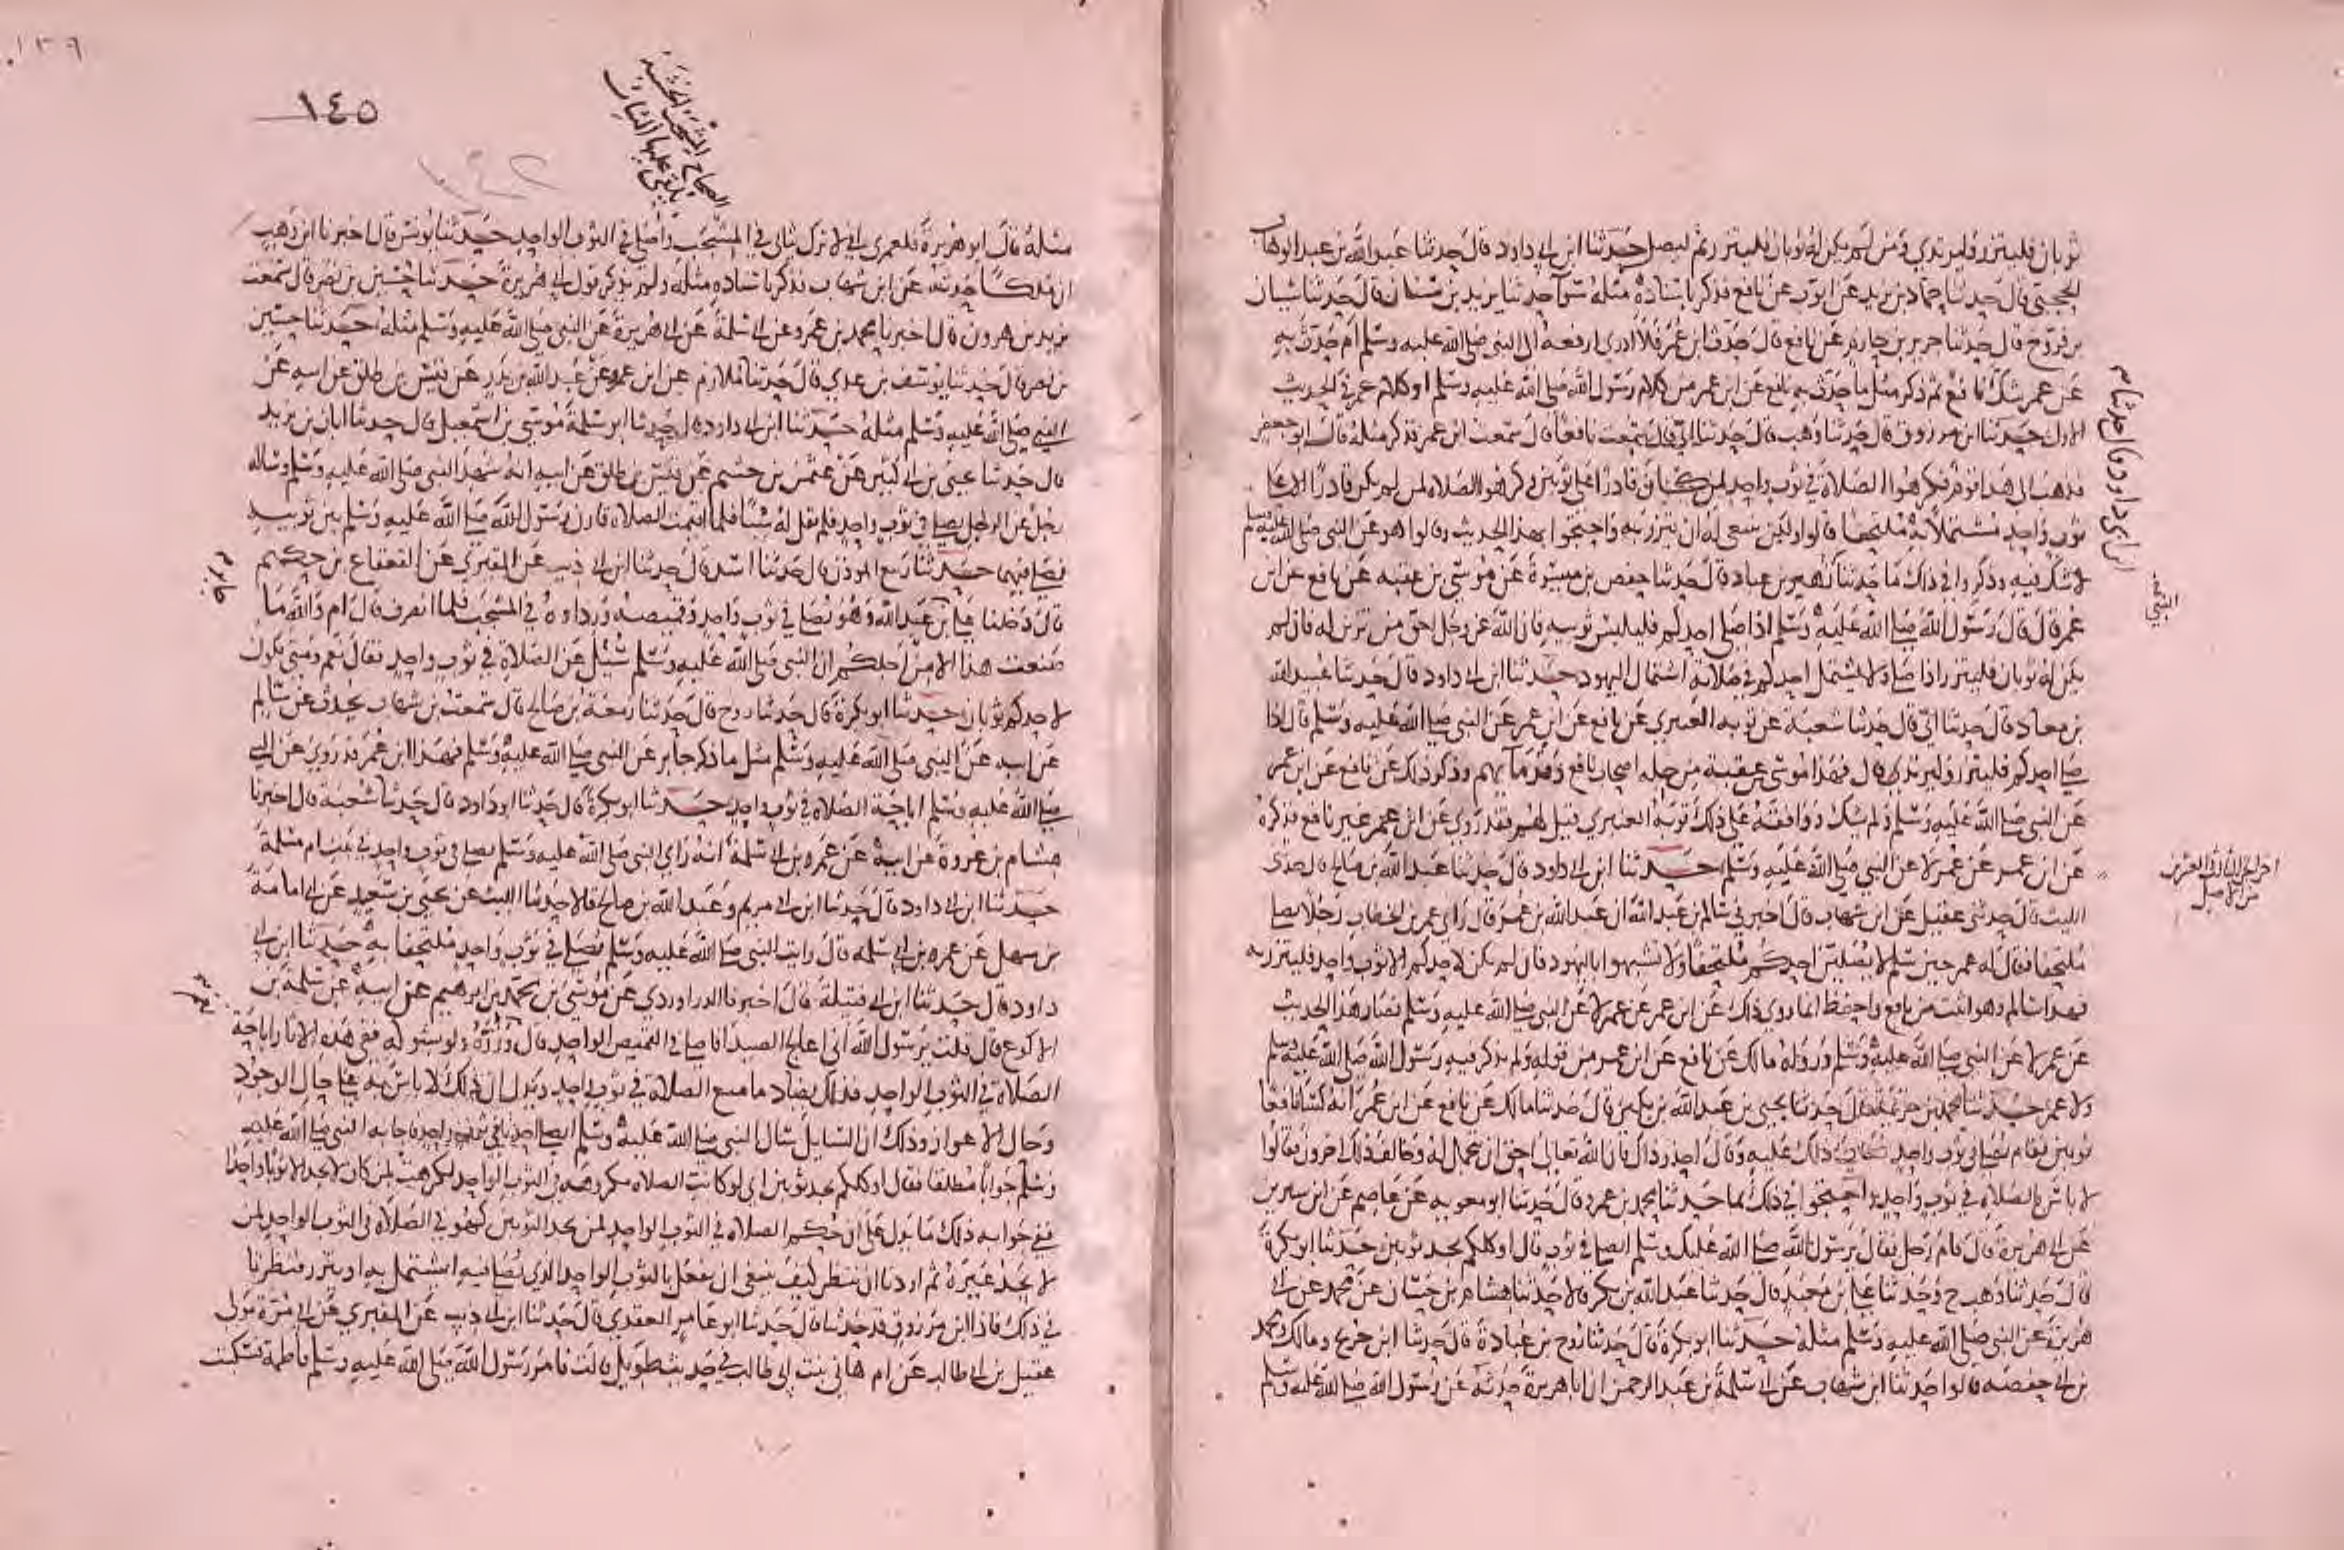 ثوبان فليتزر وليرتدي ومن لم يكن له ثوبان فليتزر ثم ليصل حدثنا ابن ابي داود قال حدثنا عبد الله بن عبد الوهاب
الحجبي قال حدثنا حماد بن زيد عن ايوب عن نافع فذكر باسناده مثله سوا حدثنا يزيد بن سنان قال حدثنا شيبان
بن فروخ قال حدثنا جرير بن حازم عن نافع قال حدث ابن عمر فلا ادري ارفعه الى النبي صلى الله عليه وسلم ام حدث به
عن عمر شك نافع ثم ذكر مثل ما حدث به نافع عن ابن عمر من كلام رسول الله صلى الله عليه وسلم او كلام عمر في الحديث
الاول حدثنا ابن مرزوق قال حدثنا وهب قال حدثنا ابي قال سمعت نافعا قال سمعت ابن عمر فذكر مثله قال ابو جعفر
فذهب الى هذا قوم فكرهوا الصلاة في ثوب واحد لمن كان قادرا على ثوبين وكرهوا الصلاه لمن لم يكن قادرا الا على
ثوب واحد مشتملا به ملتحفا قالوا ولكن ينبغي له ان يتزر به واحتجوا بهذا الحديث وقالوا هو عن النبي صلى الله عليه وسلم
لا شك فيه وذكروا في ذلك ما حدثنا زهير بن عباد قال حدثنا حفص بن ميسرة عن موسى بن عقبه عن نافع عن ابن
عمر قال قال رسول الله صلى الله عليه وسلم اذا صلى احدكم فليلبس ثوبيه فان الله عز وجل احق من تزين له فان لم
يكن له ثوبان فليتزر اذا صلى ولا يشتمل احدكم في صلاته اشتمال اليهود حدثنا ابن ابي داود قال حدثنا عبيد الله
بن معاد قال حدثنا ابي قال حدثنا شعبة عن توبه العنبري عن نافع عن ابن عمر عن النبي صلى الله عليه وسلم قال اذا
صلى احدكم فليتزر وليرتدي قال فهذا موسى بن عقبة من جله اصحاب نافع وقدمائهم وذكر ذلك عن نافع عن ابن عمر
عن النبي صلى الله عليه وسلم ولم يشك ووافقه على ذلك توبة العنبري قيل لهم فقد روي عن ابن عمر غير نافع فذكره
عن ابن عمر عن عمر لا عن النبي صلى الله عليه وسلم حدثنا ابن ابي داود قال حدثنا عبد الله بن صالح قال حدثني
الليث قال حدثني عقيل عن ابن شهاب قال اخبرني سالم بن عبد الله ان عبد الله بن عمر قال راى عمر بن الخطاب رجلا يصلي
ملتحفا فقال له عمر حين سلم لا يصلين احدكم ملتحفا ولا تشبهوا باليهود فان لم يكن لاحدكم الا ثوب واحد فليتزر به
فهذا سالم وهو اثبت من نافع واحفظ انما روي ذلك عن ابن عمر عن عمر لا عن النبي صلى الله عليه وسلم فصار هذا الحديث
عن عمر لا عن النبي صلى الله عليه وسلم ورواه مالك عن نافع عن ابن عمر من قوله ولم يذكر فيه رسول الله صلى الله عليه وسلم
ولا عمر حدثنا محمد بن خزيمة قال حدثنا يحيى بن عبد الله بن بكير قال حدثنا مالك عن نافع عن ابن عمر انه كسا نافعا
ثوبين فقام يصلي في ثوب واحد فعاب ذلك عليه وقال احذر ذاك فان الله تعالى احق ان تجمل له وخالف ذلك اخرون فقالوا
لا باس بالصلاه في ثوب واحد واحتجوا في ذلك بما حدثنا محمد بن عمرو قال حدثنا ابو معويه عن عاصم عن ابن سيرين
عن ابي هريرة قال قام رجل فقال يرسول الله صلى الله عليك وسلم ايصلي في ثوب قال اوكلكم يجد ثوبين حدثنا ابو بكرة
قال حدثنا وهب ح وحدثنا علي بن معبد قال حدثنا عبد الله بن بكر قالا حدثنا هشام بن حسان عن محمد عن ابي
هريرة عن النبي صلى الله عليه وسلم مثله حدثنا ابو بكرة قال حدثنا روح بن عبادة قال حدثنا ابن جريج ومالك ومحمد
بن ابي حفصه قالوا حدثنا ابن شهاب عن ابي سلمة بن عبد الرحمن ان ابا هريرة حدثه عن رسول الله صلى الله عليه وسلم
ابن ابي داود قال حدثنا
التيمي
اخر الجزء الثالث والعشرين
من الاصل
١٣٩
١٤٥
مثله قال ابو هريرة فلعمري اني لاترك ثيابي في المشجب واصلي في الثوب الواحد حدثنا يونس قال اخبرنا ابن وهب
ان مالكا حدثه عن ابن شهاب فذكر باسناده مثله ولم يذكر قول ابي هريرة حدثنا حسين بن نصر قال سمعت
يزيد بن هرون قال اخبرنا محمد بن عمرو عن ابي سلمة عن ابي هريرة عن النبي صلى الله عليه وسلم مثله حدثنا حسين
بن نصر قال حدثنا يوسف بن عدي قال حدثنا ملازم عن ابن عمرو عن عبد الله بن بدر عن قيس بن طلق عن ابيه عن
النبي صلى الله عليه وسلم مثله حدثنا ابن ابي داود قال حدثنا ابو سلمة موسى بن اسمعيل قال حدثنا ابان بن يزيد
قال حدثنا يحيى بن ابي كثير عن عثمن بن خثيم عن قيس بن طلق عن ابيه انه شهد النبي صلى الله عليه وسلم وساله
رجل عن الرجل يصلي في ثوب واحد فلم يقل له شيئا فلما اقيمت الصلاه قارن رسول الله صلى الله عليه وسلم بين ثوبيه
فصلى فيهما حدثنا ربيع الموذن قال حدثنا اسد قال حدثنا ابن ابي ذيب عن المقبري عن القعقاع بن حكيم
قال دخلنا على ابن عبد الله وهو يصلي في ثوب واحد وقميصه ورداوه في المشجب فلما انصرف قال ام والله ما
صنعت هذا الا من اجلكم ان النبي صلى الله عليه وسلم سئل عن الصلاة في ثوب واحد فقال نعم ومتى يكون
لاحدكم ثوبان حدثنا ابو بكرة قال حدثنا روح قال حدثنا زمعة بن صالح قال سمعت بن شهاب يحدث عن سالم
عن ابيه عن النبي صلى الله عليه وسلم مثل ما ذكر جابر عن النبي صلى الله عليه وسلم فهذا ابن عمر قد روي عن النبي
صلى الله عليه وسلم اباحة الصلاه في ثوب واحد حدثنا ابو بكرة قال حدثنا ابو داود قال حدثنا شعبة قال اخبرنا
هشام بن عروة عن ابيه عن عمر بن ابي سلمة انه راى النبي صلى الله عليه وسلم يصلي في ثوب واحد
حدثنا ابن ابي داود قال حدثنا ابن ابي مريم وعبد الله بن صالح قالا حدثنا الليث عن يحيى بن سعيد عن ابي امامة
بن سهل عن عمر بن ابي سلمه قال رايت النبي صلى الله عليه وسلم يصلي في ثوب واحد ملتحفا به حدثنا ابن ابي
داود قال حدثنا ابن ابي قتيلة قال اخبرنا الدراوردي عن موسى بن محمد بن ابرهيم عن ابيه عن سلمة بن
الاكوع قال قلت يرسول الله اني اعالج الصيد افاصلي في القميص الواحد قال وزره ولو بشوكه ففي هذه الاثار اباحة
الصلاة في الثوب الواحد فذلك يضاد ما منع الصلاة في ثوب واحد ويدل ان ذلك لا باس به على حال الوجود
وحال الاعواز وذلك ان السايل سال النبي صلى الله عليه وسلم ايصلي احدنا في ثوب واحد فاجابه النبي صلى الله عليه
وسلم جوابا مطلقا فقال اوكلكم يجد ثوبين اي لو كانت الصلاه مكروهه في الثوب الواحد لكرهت لمن كان لا يجد الا ثوبا واحدا
ففي جوابه ذلك ما يدل على ان حكم الصلاه في الثوب الواحد لمن يجد الثوبين كهو في الصلاة في الثوب الواحد لمن
لا يجد غيره ثم اردنا ان ننظر كيف ينبغي ان يفعل بالثوب الواحد الذي يصلي فيه ايشتمل به او يتزر فنظرنا
في ذلك فاذا ابن مرزوق قد حدثنا قال حدثنا ابو عامر العقدي قال حدثنا ابن ابي ذيب عن المقبري عن ابي مرة مولى
عقيل بن ابي طالب عن ام هاني بنت ابي طالب في حديث طويل قالت فامر رسول الله صلى الله عليه وسلم فاطمة فسكبت